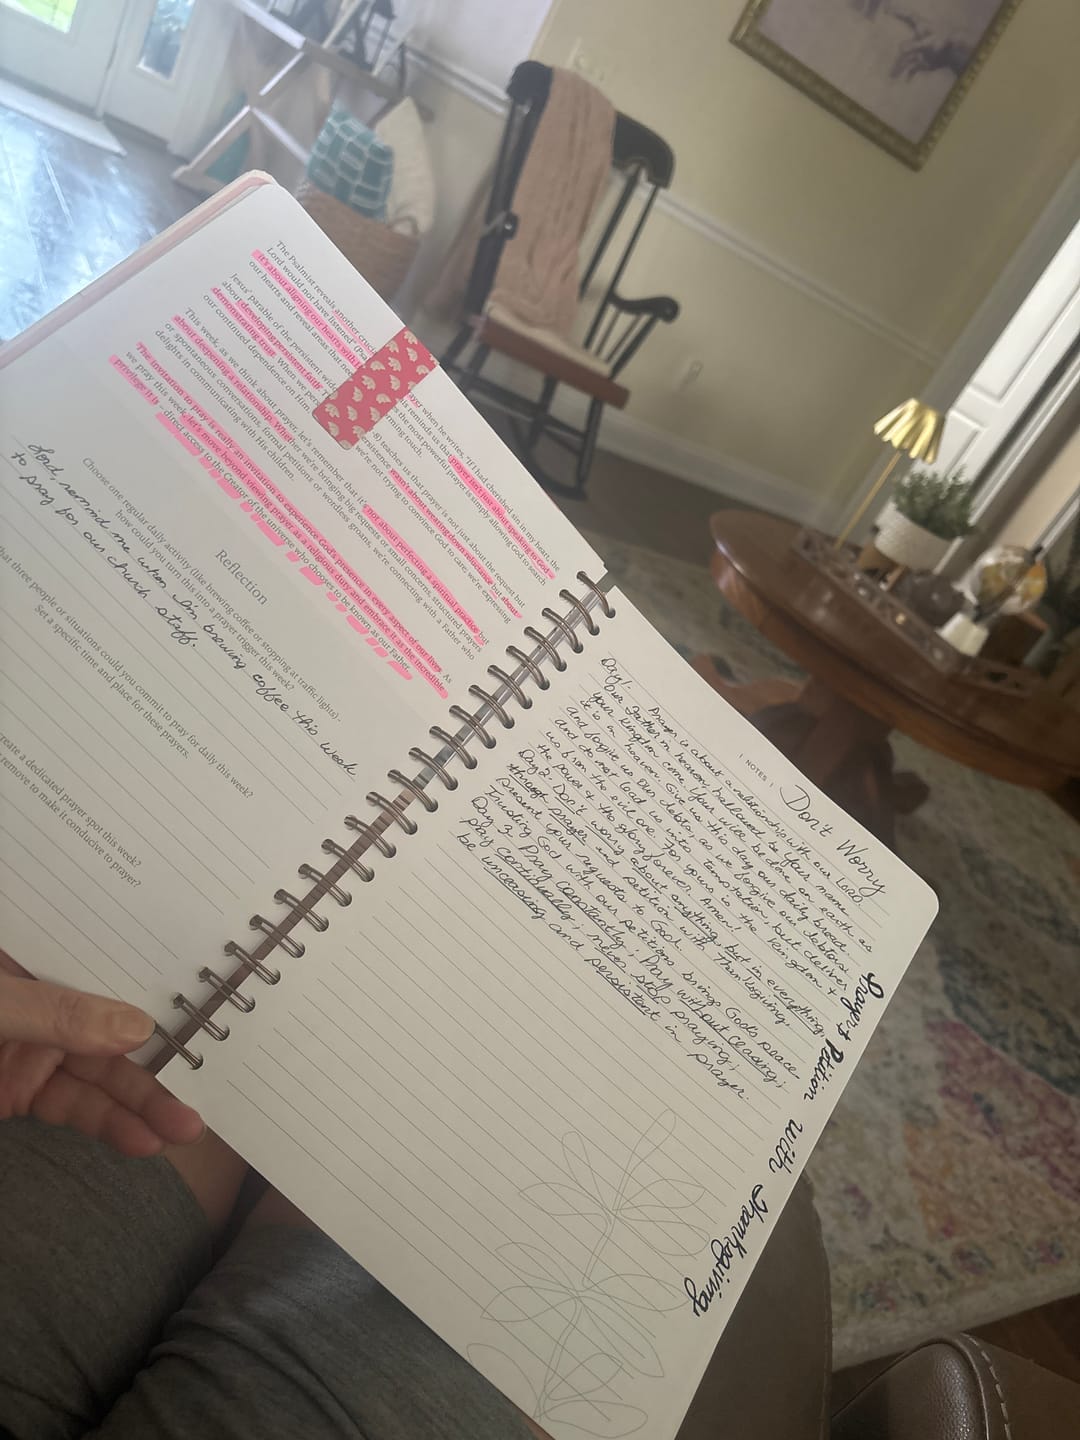 The Psalmist reveals another cruc ayer when he writes, "If I had cherished sin in my heart, the
Lord would not have listened" (Psa is reminds us that prayer isn't just about speaking to God—
it's about aligning our hearts with s the most powerful prayer is simply allowing God to search
our hearts and reveal areas that nee rming touch.
Jesus' parable of the persistent wid 8) teaches us that prayer is not just about the request but
about developing persistent faith. T ersistence wasn't about wearing down reluctance but about
demonstrating trust. When we pers we're not trying to convince God to care; we're expressing
our continued dependence on Him
This week, as we think about prayer, let's remember that it's not about perfecting a spiritual practice but
about deepening a relationship. Whether we're bringing big requests or small concerns, structured prayers
or spontaneous conversations, formal petitions or wordless groans, we're connecting with a Father who
delights in communicating with His children.
The invitation to pray is really an invitation to experience God's presence in every aspect of our lives. As
we pray this week, let's move beyond viewing prayer as a religious duty and embrace it as the incredible
privilege it is – direct access to the Creator of the universe who chooses to be known as our Father.
Reflection
Choose one regular daily activity (like brewing coffee or stopping at traffic lights) -
how could you turn this into a prayer trigger this week?
Lord, remind me when I'm brewing coffee this week
to pray for our church staff.
hat three people or situations could you commit to pray for daily this week?
Set a specific time and place for these prayers.
reate a dedicated prayer spot this week?
r remove to make it conducive to prayer?
| NOTES |
Don't Worry
Day 1: Prayer is about a relationship with our LORD.
Our Father in heaven, hallowed be your name
your kingdom come. Your will be done on earth as
it is in heaven. Give us this day our daily bread.
and forgive us our debts, as we forgive our debtors.
and do not lead us into temptation, but deliver
us from the evil one. For yours is the kingdom +
the power + the glory forever. Amen!
Day 2: Don't worry about anything, but in everything,
through prayer and petition with Thanksgiving,
present your requests to God.
Trusting God with our petitions brings God's peace
Day 3 Pray constantly; Pray without ceasing;
pray continually; never stop praying;
be unceasing and persistent in prayer.
Prayer & Petition with Thanksgiving